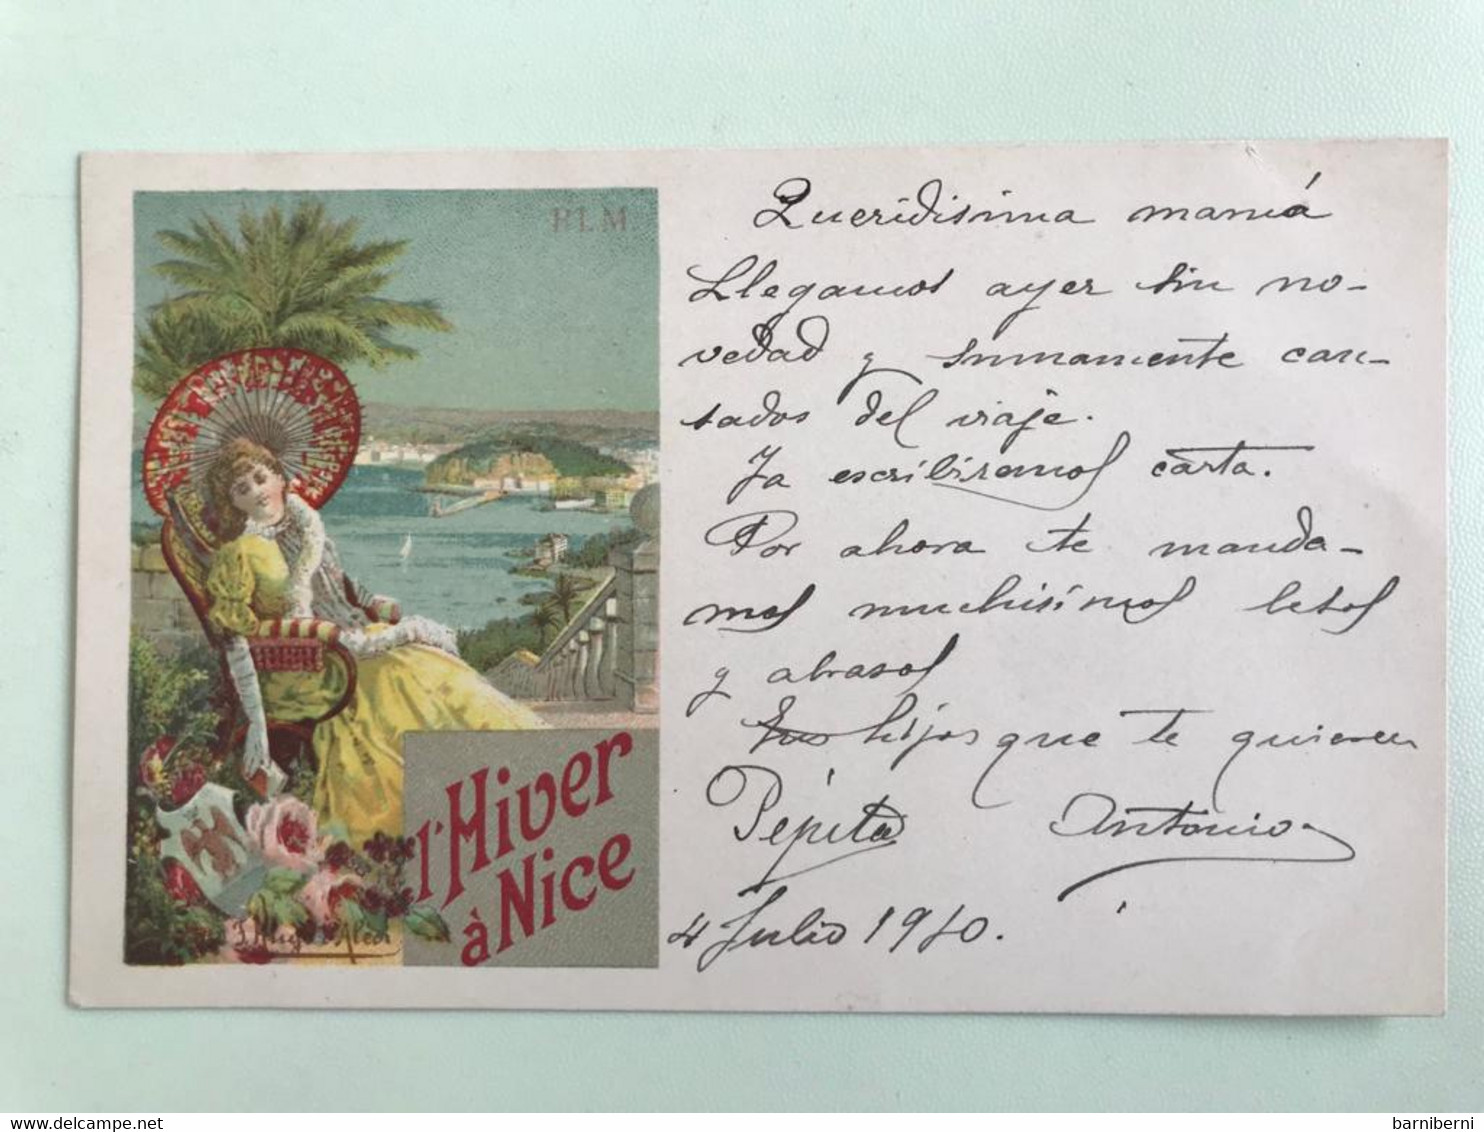 P.L.M.
l'Hiver
à Nice
F. Hugo d'Alesi
Queridisima mamá
Llegamos ayer sin no-
vedad y sumamente can-
sados del viaje.
Ya escribiremos carta.
Por ahora te manda-
mos muchisímos besos
y abrasos
tus hijos que te quieren
Pepita Antonio
4 Julio 1910.
delcampe.net
barniberni